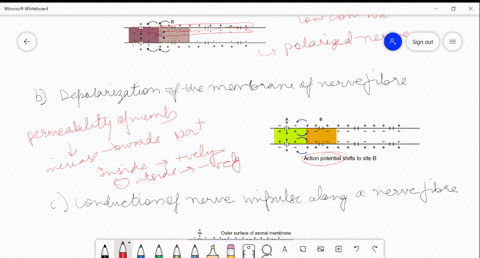 Microsoft Whiteboard
B
low con Na
Sign out
→ polarized nerve
b) Depolarization of the membrane of nerve fibre
permeability of memb
increase → towards Na+
A B
Action potential shifts to site B
inside → +vely
outside → -vely
c) Conduction of nerve impulse along a nerve fibre
Outer surface of axonal membrane